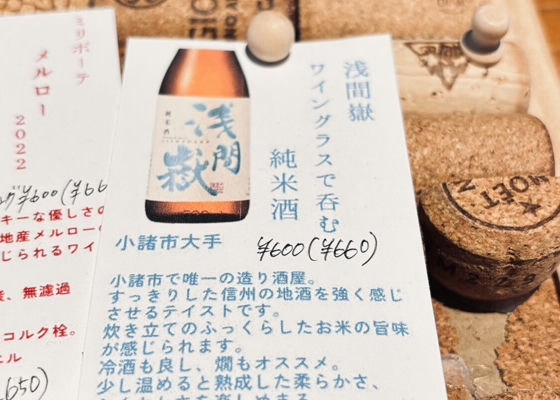 ミリボーテ
メルロー
2022
¥600(¥66
キーな優しさの
地産メルロー
じられるワイ
、無濾過
コルク栓。
650)
浅間嶽
ワイングラスで呑む
純米酒
純米酒
浅間
嶽
小諸市大手
¥600(¥660)
小諸市で唯一の造り酒屋。
すっきりした信州の地酒を強く感じ
させるテイストです。
炊き立てのふっくらしたお米の旨味
が感じられます。
冷酒も良し、燗もオススメ。
少し温めると熟成した柔らかさ、
MOËT